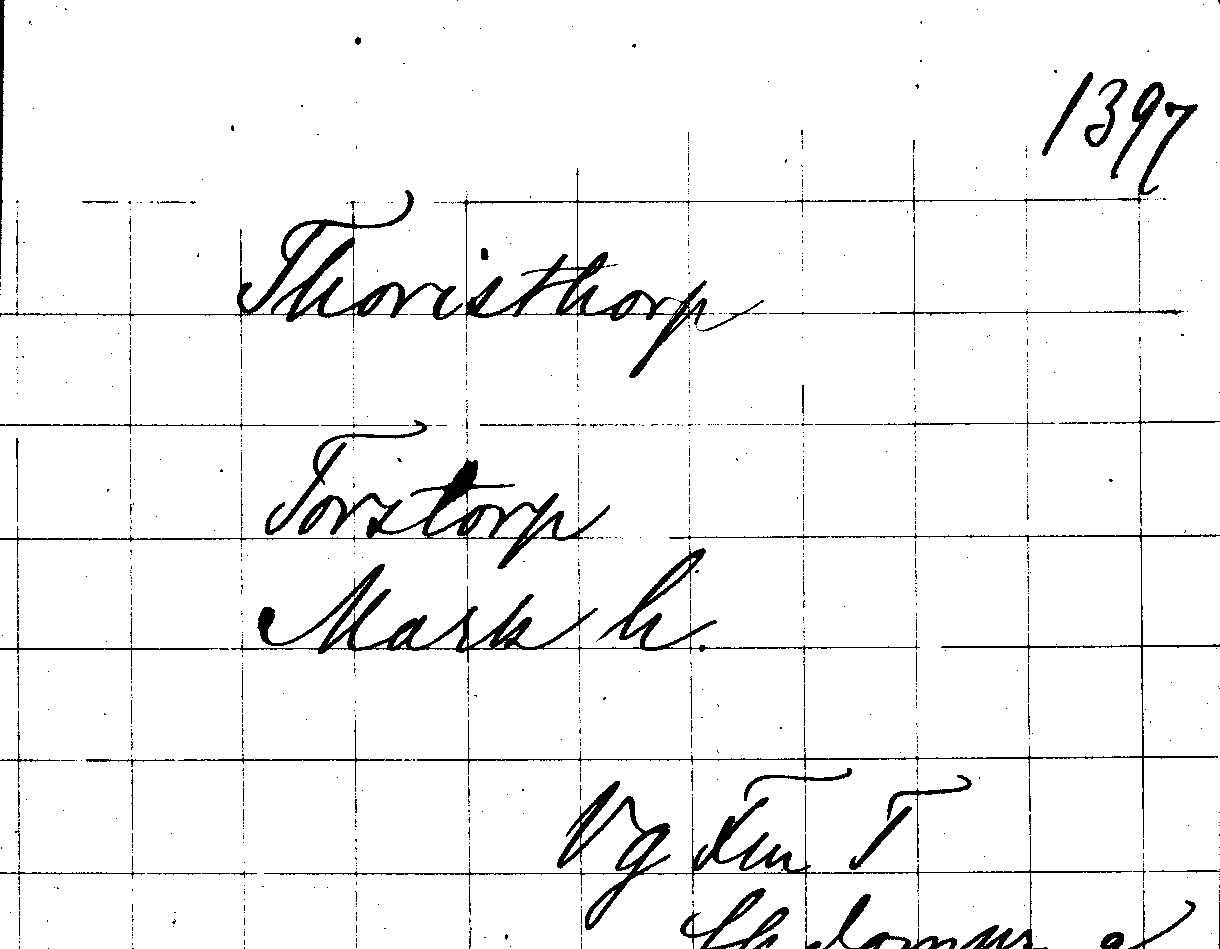 1397
Thoristhorp
Torstorp
Mark h.
Vg Fn T